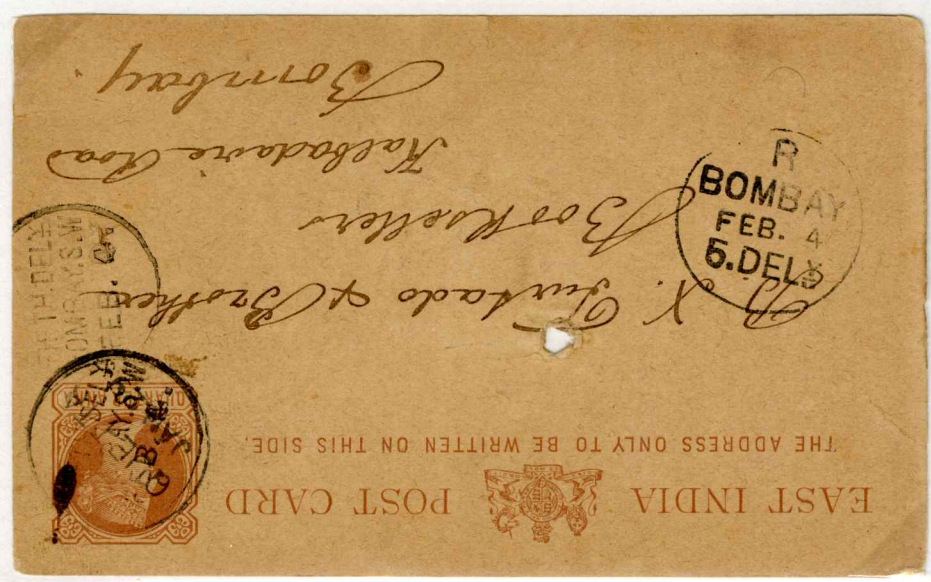 EAST INDIA POST CARD
THE ADDRESS ONLY TO BE WRITTEN ON THIS SIDE.
B. X. Furtado & Brother
Booksellers
Kalbadavie Road
Bombay.
R
BOMBAY
FEB. 4
5.DELY
TH DELY
FEB.
JA